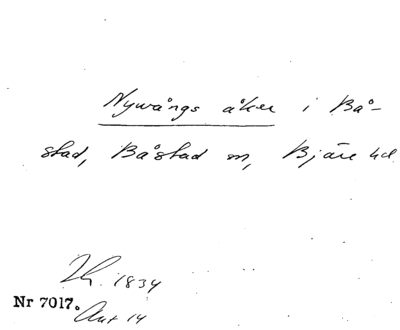 Nywångs åker i Bå-
stad, Båstad sn, Bjäre hd.
Th. 1834
Nr 7017.
Aut 14